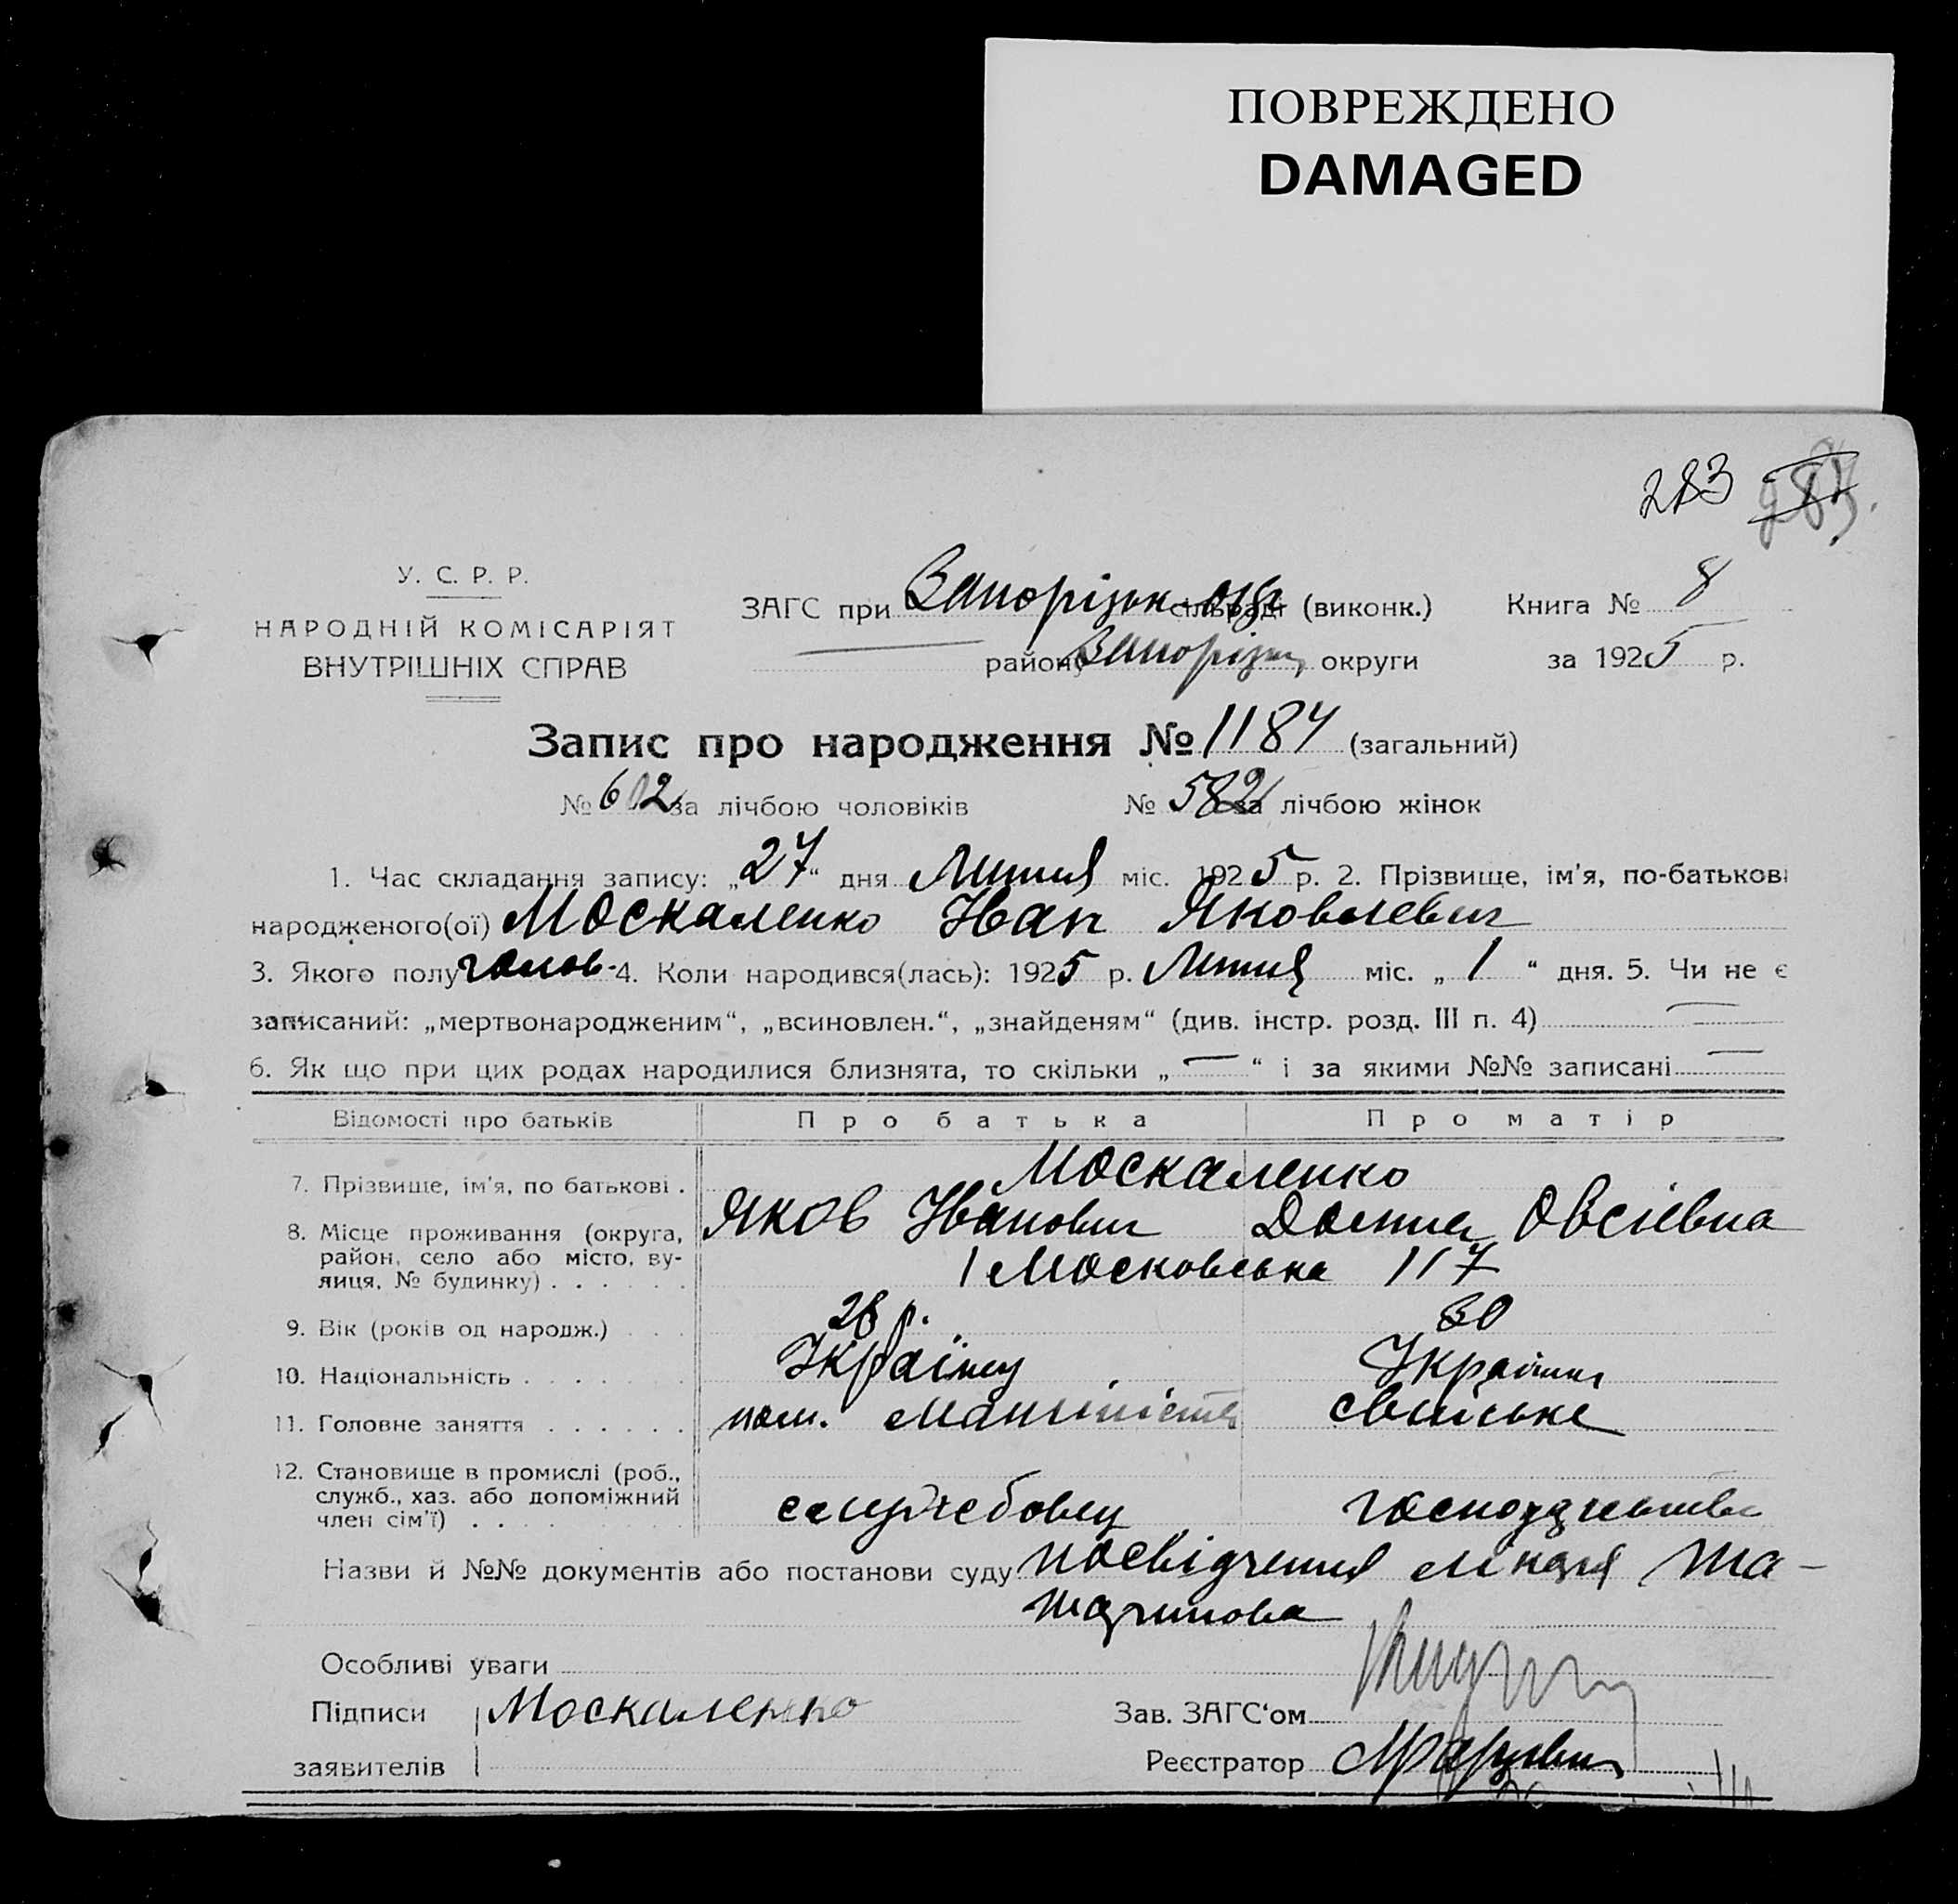 ПОВРЕЖДЕНО
DAMAGED
283
У. С. Р. Р.
НАРОДНІЙ КОМІСАРІЯТ
ВНУТРІШНІХ СПРАВ
ЗАГС при Запорізьк. окр сільраді (виконк.)
району Запорізьк. округи
Книга № 8
за 1925 р.
Запис про народження № 1184 (загальний)
№ 602 за лічбою чоловіків № 582 за лічбою жінок
1. Час складання запису: „27“ дня Липня міс. 1925 р. 2. Прізвище, ім'я, по-батькові
народженого(ої) Москаленко Іван Яковлевич
3. Якого полу чолов. 4. Коли народився(лась): 1925 р. Липня міс. „1“ дня. 5. Чи не є
записаний: „мертвонародженим“, „всиновлен.“, „знайденям“ (див. інстр. розд. III п. 4) —
6. Як що при цих родах народилися близнята, то скільки „—“ і за якими №№ записані —
Відомості про батьків Про батька Про матір
7. Прізвище, ім'я, по батькові . Москаленко
Яков Іванович Домна Овсіевна
8. Місце проживання (округа,
район, село або місто, ву-
лиця, № будинку) . . . . . . Московська 117
9. Вік (років од народж.) . . . 28 р. 30
10. Національність . . . . . . . Українец Українка
11. Головне заняття . . . . . . пом. машиніста свійське
12. Становище в промислі (роб.,
служб., хаз. або допоміжний
член сім'ї) . . . . служебовец господарьство
Назви й №№ документів або постанови суду посвідчення лікаря
Особливі уваги
Підписи Москаленко Зав. ЗАГС‘ом
заявителів Реєстратор